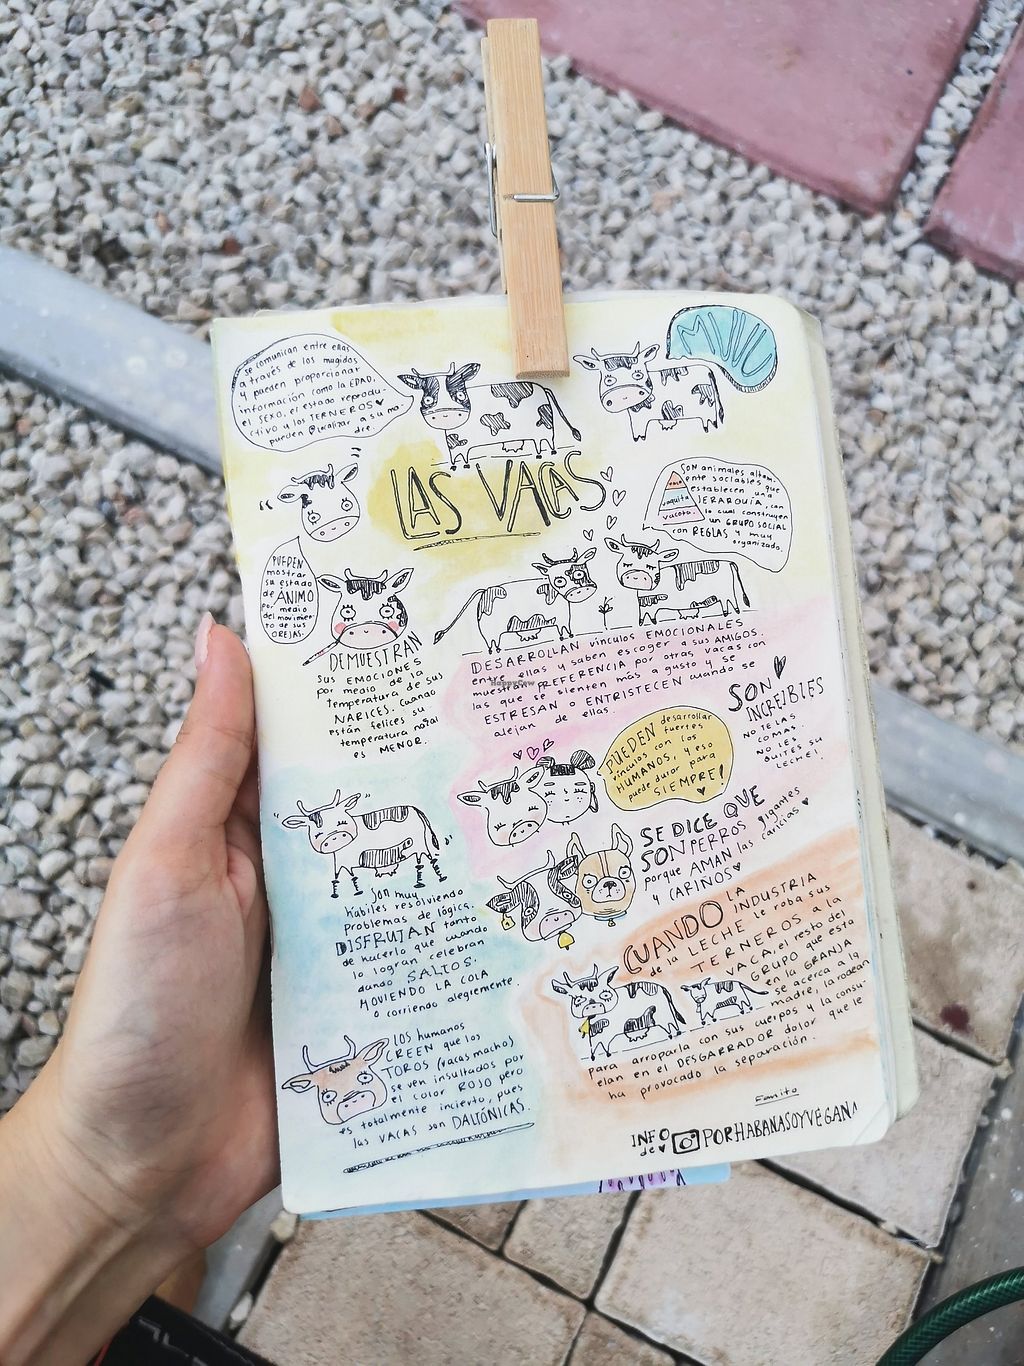 se comunican entre ellas
a través de los mugidos
y pueden proporcionar
información como la EDAD,
el SEXO, el estado reprodu-
ctivo y los TERNEROS
pueden localizar a su ma-
dre.
MUUU
LAS VACAS
SON animales altam-
ente sociables que
establecen una
JERARQUÍA, con
la cual construyen
un GRUPO SOCIAL
con REGLAS y muy
organizado.
vaca
vaquita
vacota
PUEDEN
mostrar
su estado
de ÁNIMO
por medio
del movimien-
to de sus
OREJAS.
DEMUESTRAN
sus EMOCIONES
por medio de la
temperatura de sus
NARICES. Cuando
están felices su
temperatura nasal
es MENOR.
DESARROLLAN vínculos EMOCIONALES
entre ellas y saben escoger a sus AMIGOS.
muestran PREFERENCIA por otras vacas con
las que se sienten más a gusto y se
ESTRESAN o ENTRISTECEN cuando se
alejan de ellas.
HappyCow
SON
INCREÍBLES
NO TE LAS
COMAS.
NO LES
QUITES SU
LECHE!
PUEDEN desarrollar
fuertes
vínculos con los
HUMANOS, y eso
puede durar para
SIEMPRE!
SE DICE QUE
SON PERROS gigantes
porque AMAN las caricias
y CARIÑOS
Son muy
hábiles resolviendo
problemas de lógica.
DISFRUTAN tanto
de hacerlo que cuando
lo logran celebran
dando SALTOS,
MOVIENDO LA COLA
o corriendo alegremente.
CUANDO LA
INDUSTRIA
de la LECHE le roba sus
TERNEROS A LA
VACA, el resto del
GRUPO que está
en la GRANJA
se acerca a la
madre, la rodean
para arroparla con sus cuerpos y la consu-
elan en el DESGARRADOR dolor que le
ha provocado la separación.
LOS humanos
CREEN que los
TOROS (vacas macho)
se ven insultados por
el color ROJO pero
es totalmente incierto, pues
las VACAS son DALTÓNICAS.
INFO
de
PORHABANASOYVEGANA